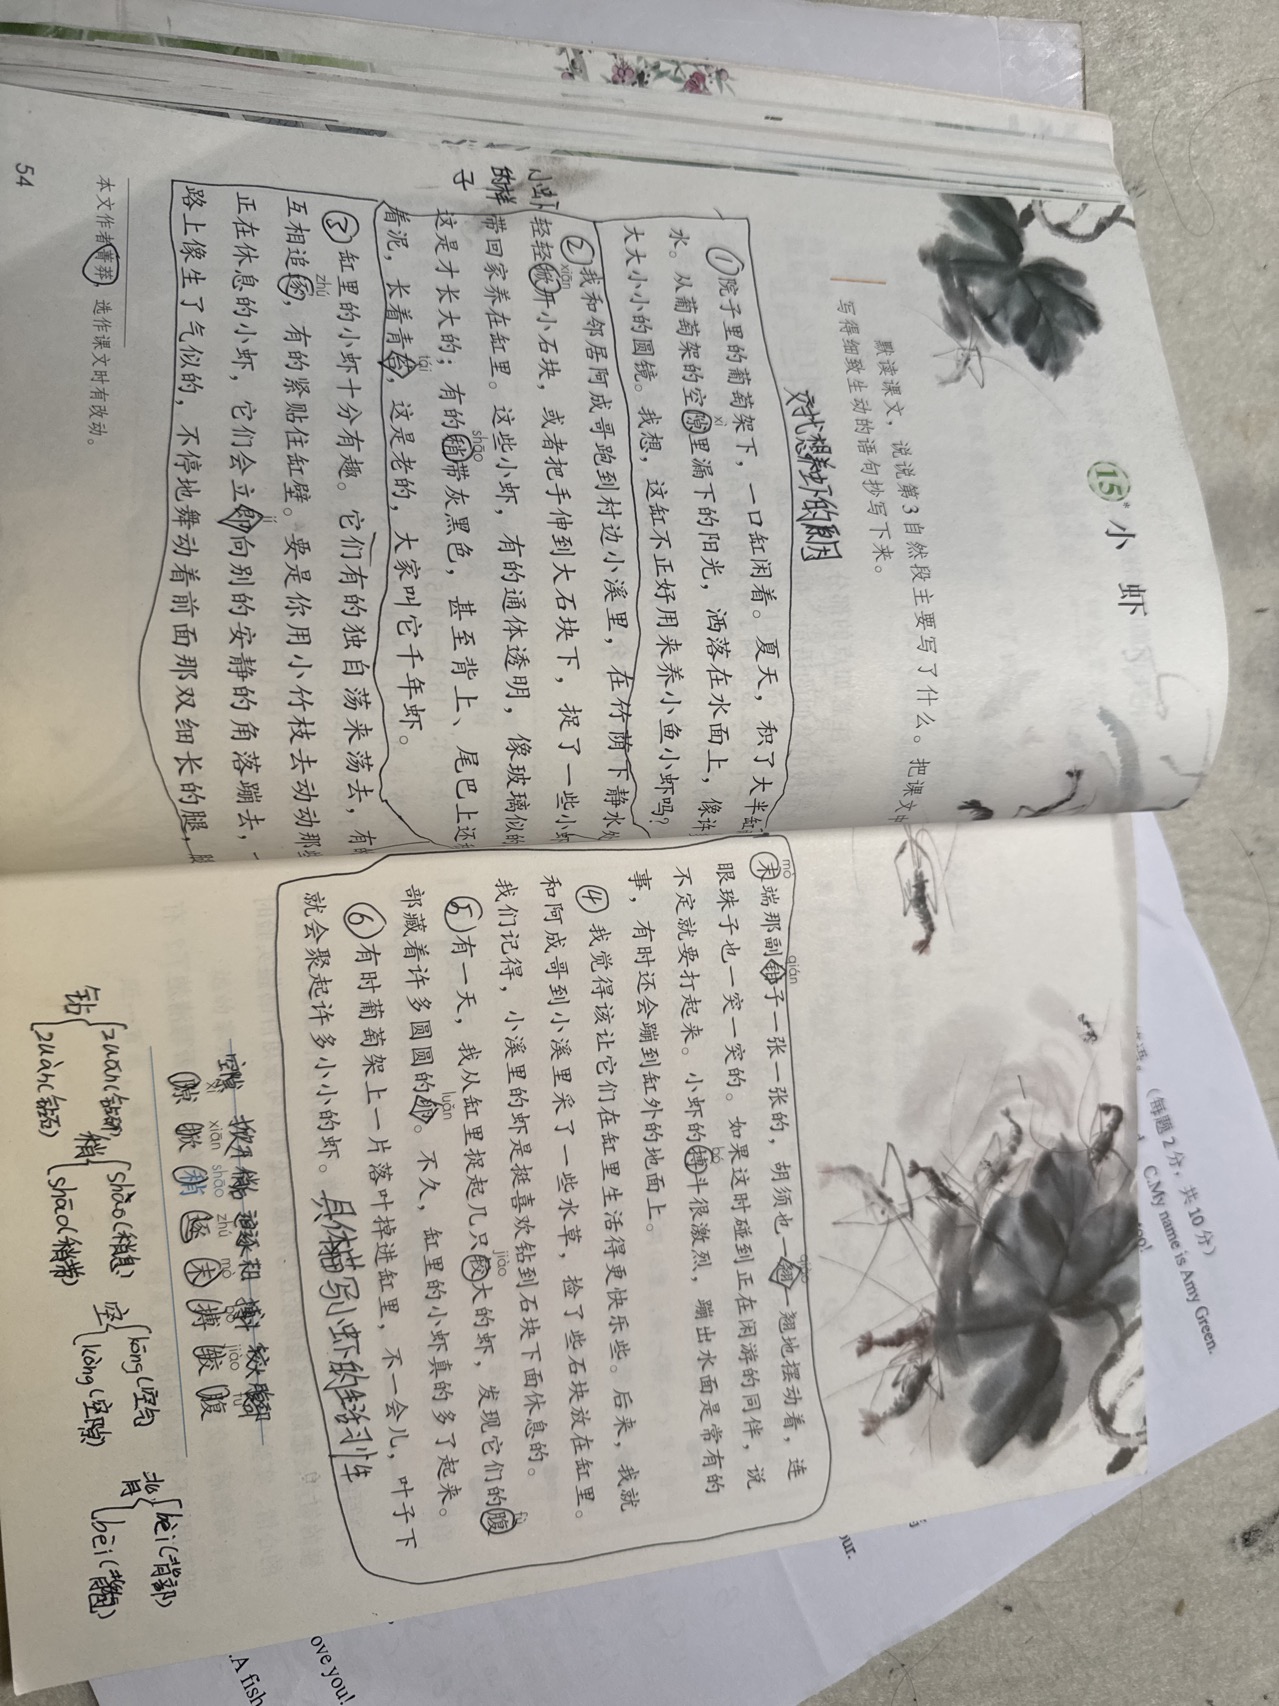 15*小虾
默读课文，说说第3自然段主要写了什么。把课文中
写得细致生动的语句抄写下来。
交代想养虾的原因
①院子里的葡萄架下，一口缸闲着。夏天，积了大半缸
xì
水。从葡萄架的空隙里漏下的阳光，洒落在水面上，像许
大大小小的圆镜。我想，这缸不正好用来养小鱼小虾吗？
②我和邻居阿成哥跑到村边小溪里，在竹荫下静水处
xiān
小虾的样子
轻轻掀开小石块，或者把手伸到大石块下，捉了一些小虾
带回家养在缸里。这些小虾，有的通体透明，像玻璃似的
这是才长大的；有的稍带灰黑色，甚至背上、尾巴上还
shāo
tái
着泥，长着青苔，这是老的，大家叫它千年虾。
③缸里的小虾十分有趣。它们有的独自荡来荡去，有的
zhú
互相追逐，有的紧贴住缸壁。要是你用小竹枝去动动那些
jí
正在休息的小虾，它们会立即向别的安静的角落蹦去，一
路上像生了气似的，不停地舞动着前面那双细长的腿，
本文作者菁莽，选作课文时有改动。
54
mò qián qiào
末端那副钳子一张一张的，胡须也一翘一翘地摆动着，连
眼珠子也一突一突的。如果这时碰到正在闲游的同伴，说
bó
不定就要打起来。小虾的搏斗很激烈，蹦出水面是常有的
事，有时还会蹦到缸外的地面上。
④我觉得该让它们在缸里生活得更快乐些。后来，我就
和阿成哥到小溪里采了一些水草，捡了些石块放在缸里。
我们记得，小溪里的虾是挺喜欢钻到石块下面休息的。
jiào fù
⑤有一天，我从缸里捉起几只较大的虾，发现它们的腹
luǎn
部藏着许多圆圆的卵。不久，缸里的小虾真的多了起来。
⑥有时葡萄架上一片落叶掉进缸里，不一会儿，叶子下
就会聚起许多小小的虾。具体描写小虾的生活习性
空隙 掀开 稍 追逐 末 搏斗 较大 腹部
xì xiān shāo zhú mò bó jiào fù
隙 掀 稍 逐 末 搏 较 腹
钻 zuān(钻研) zuàn(钻石)
稍 shào(稍息) shāo(稍带)
空 kōng(空气) kòng(空隙)
背 bèi(背部) bēi(背包)
(每题2分，共10分)
C.My name is Amy Green.
our.
ove you!
.A fish